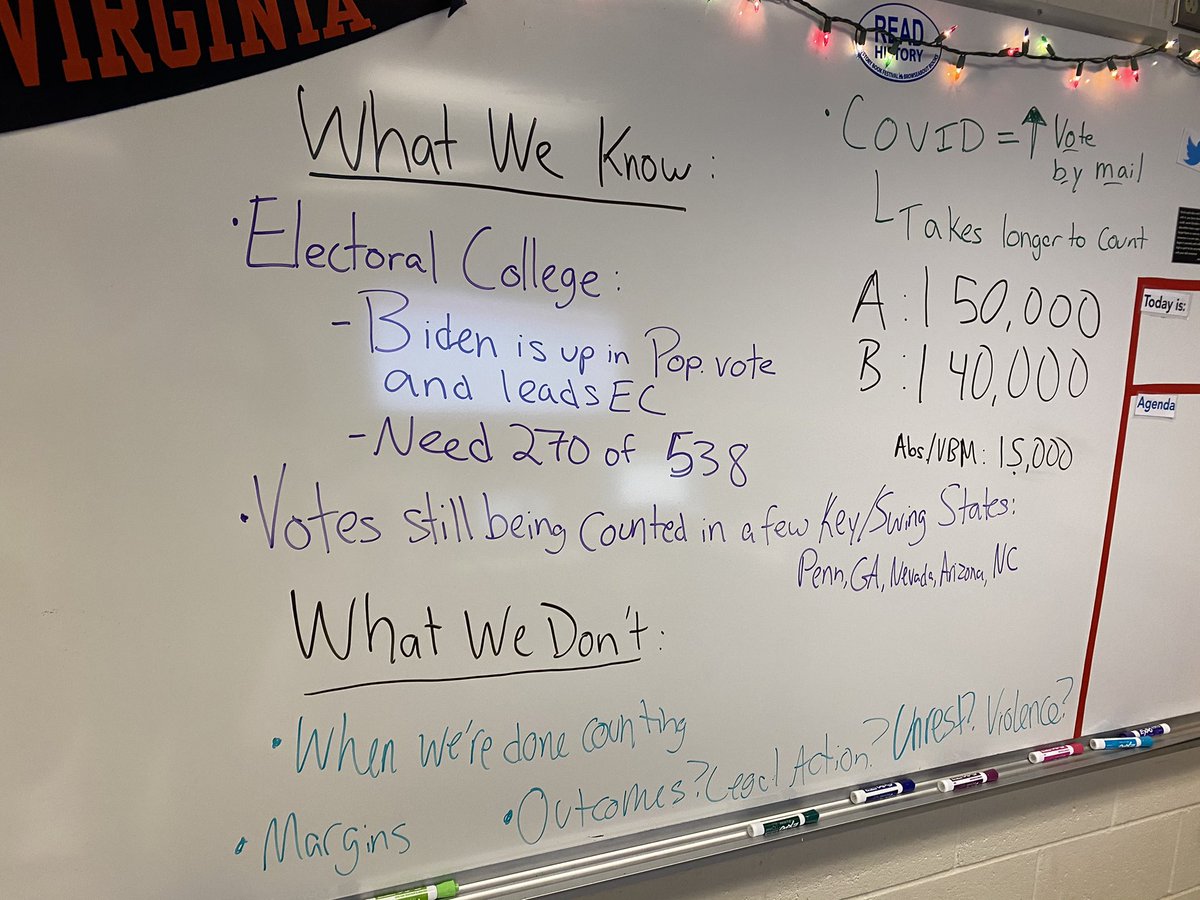 VIRGINIA
READ
HISTORY
What We Know:
• Electoral College:
- Biden is up in Pop. vote
and leads EC
- Need 270 of 538
• Votes still being counted in a few Key/Swing States:
Penn, GA, Nevada, Arizona, NC
What We Don't:
• When we're done counting
• Margins
• Outcomes? Legal Action? Unrest? Violence?
• COVID = ↑ Vote
by mail
Takes longer to count
A: 150,000
B: 140,000
Abs/VBM: 15,000
Today is:
Agenda
expo